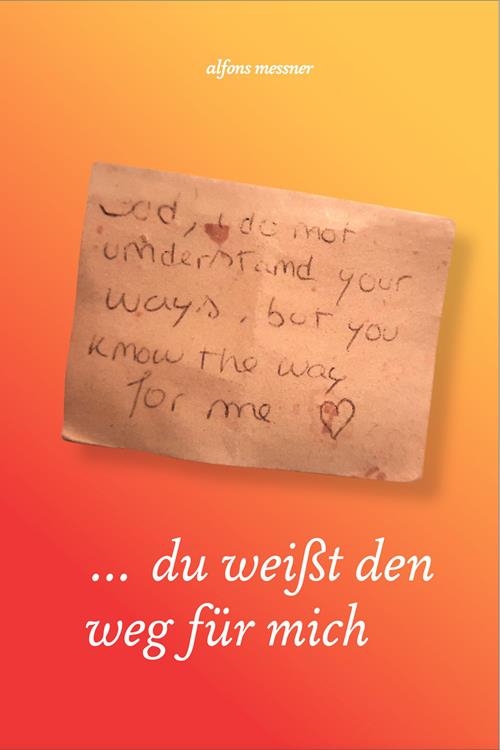 alfons messner
God, I do not
understand your
ways, but you
know the way
for me ♡
... du weißt den
weg für mich